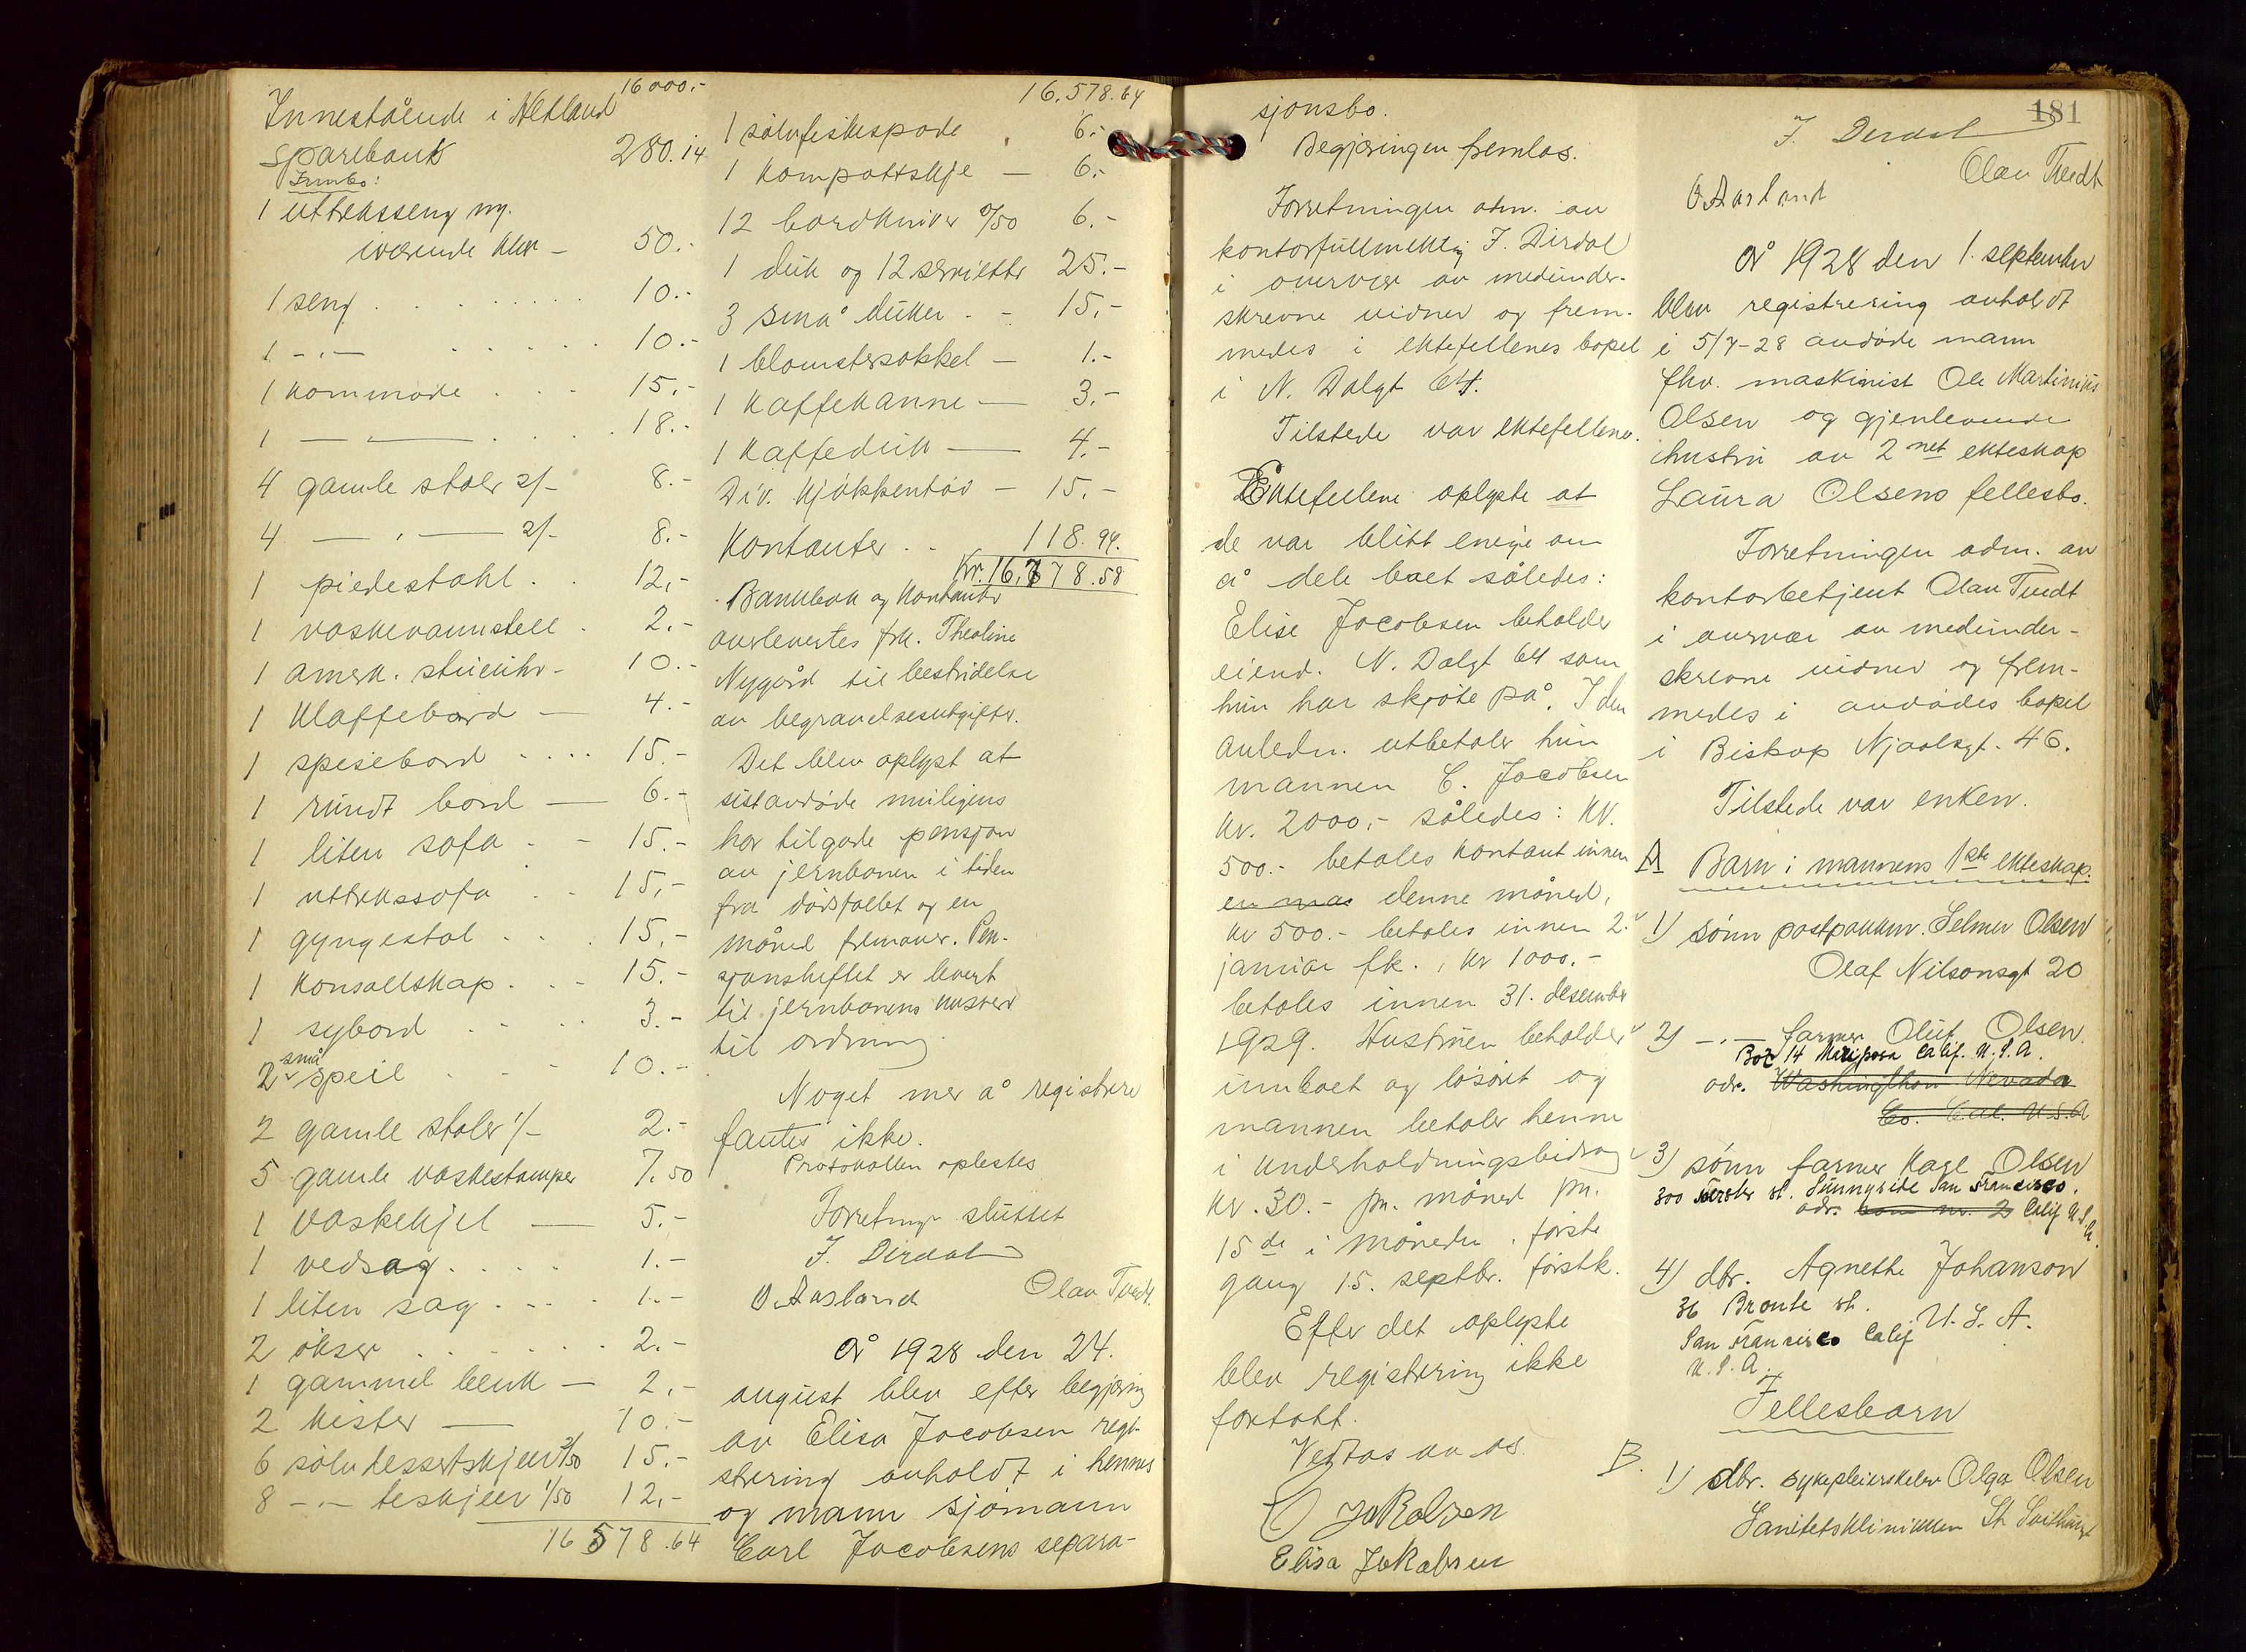 16000.-
Innestående i Hetland
Sparebank 280.14
Innbo:
1 uttrekksseng m.
iværende klær - 50.-
1 seng . . . . . . 10.-
1 -"- . . . . . 10.-
1 kommode . . . 15.-
1 -"- . . . . 18.-
4 gamle stoler 2/- 8.-
4 -"- 2/- 8.-
1 piedestahl . . 12,-
1 vaskevannstell . 2.-
1 amerk. stueuhr - 10.-
1 klaffebord - 4.-
1 spisebord . . . . 15.-
1 rundt bord - 6.-
1 liten sofa . - 15.-
1 uttrekssofa . . 15,-
1 gyngestol . . . 15,-
1 konsollskap . . . 15.-
1 sybord . . . . 3.-
små
2 speil . . . 10.-
2 gamle stoler 1/- 2.-
5 gamle vaskestamper 7.50
1 vaskekjel - 5.-
1 vedsag . . . . 1.-
1 liten sag . . . . 1.-
2 økser . . . . . . 2.-
1 gammel benk - 2,-
2 kister - 10.-
6 sølvdessertskjeer 2/50 15.-
8 -"- teskjeer 1/50 12,-
16 578.64
16.578.64
1 sølvfiskespade . 6.-
1 kompottskje - 6.-
12 bordkniver 0/50 6.-
1 duk og 12 servietter 25.-
3 små duker . - 15,-
1 blomstersokkel - 1.-
1 kaffekanne - 3.-
1 kaffeduk - 4.-
Div. kjøkkentøi - 15.-
Kontanter . . 118.94.
Kr. 16,778.58
Bankbok og kontanter
overlevertes frk. Theoline
Nygård til bestridelse
av begravelsesutgifter.
Det blev oplyst at
sistavdøde muligens
har tilgode pensjon
av jernbanen i tiden
fra dødsfallet og en
måned fremover. Pen-
sjonsheftet er levert
til jernbanens kasserer
til ordning.
Noget mer å registrere
fantes ikke.
Protokollen oplestes
Forretningen sluttet
J. Dirdal
O. Aasland Olav Tvedt.
År 1928 den 24.
august blev efter begjæring
av Elisa Jacobsen regi-
strering avholdt i hennes
og mann sjømann
Carl Jacobsens separa-
sjonsbo.
Begjæringen fremlas.
Forretningen adm. av
kontorfullmektig J. Dirdal
i overvær av medunder-
skrevne vidner og frem-
medes i ektefellenes bopel
i N. Dalgt 64.
Tilstede var ektefellene.
Ektefellene oplyste at
de var blitt enige om
å dele boet således:
Elise Jacobsen beholder
eiend. N. Dalgt 64 som
hun har skjøte på. I den
anledn. utbetaler hun
mannen C. Jacobsen
kr. 2000,- således: kr.
500.- betales kontant innen
en mas denne måned,
kr 500.- betales innen 2.
januar fk., kr 1000.-
betales innen 31. desember
1929. Hustruen beholder
innboet og løsøret og
mannen betaler henne
i underholdningsbidrag
kr. 30.- pr. måned pr.
15de i måneden, første
gang 15. septbr. førstk.
Efter det oplyste
blev registrering ikke
foretatt.
Vedtas av os.
C Jakobsen
Elisa Jakobsen
181
J. Dirdal
Olav Tvedt
O Aasland
År 1928 den 1. september
blev registrering avholdt
i 5/7-28 avdøde mann
fhv. maskinist Ole Martinius
Olsen og gjenlevende
hustru av 2net ekteskap
Laura Olsens fellesbo.
Forretningen adm. av
kontorbetjent Olav Tvedt
i overvær av medunder-
skrevne vidner og frem-
medes i avdødes bopel
i Biskop Njaalsgt. 46.
Tilstede var enken.
A Barn i mannens 1ste ekteskap.
1) sønn postpakkm. Selmer Olsen
Olaf Nilsonsgt 20
2) -"- farmer Oluf Olsen
Box 14 Mariposa Calif. U.S.A.
adr. Washingthon Nevada
Co. Cal. U.S.A
3) sønn farmer Karl Olsen
300 Sunnyside San Francisco.
adr. Calif U.S.A.
4) dtr. Agnethe Johanson
36 Bronte st. U.S.A.
San Francisco Calif
U.S.A.
Fellesbarn
B. 1) dtr. sykepleierskelev Olga Olsen
Sanitetsklinikken St Svithunsgt